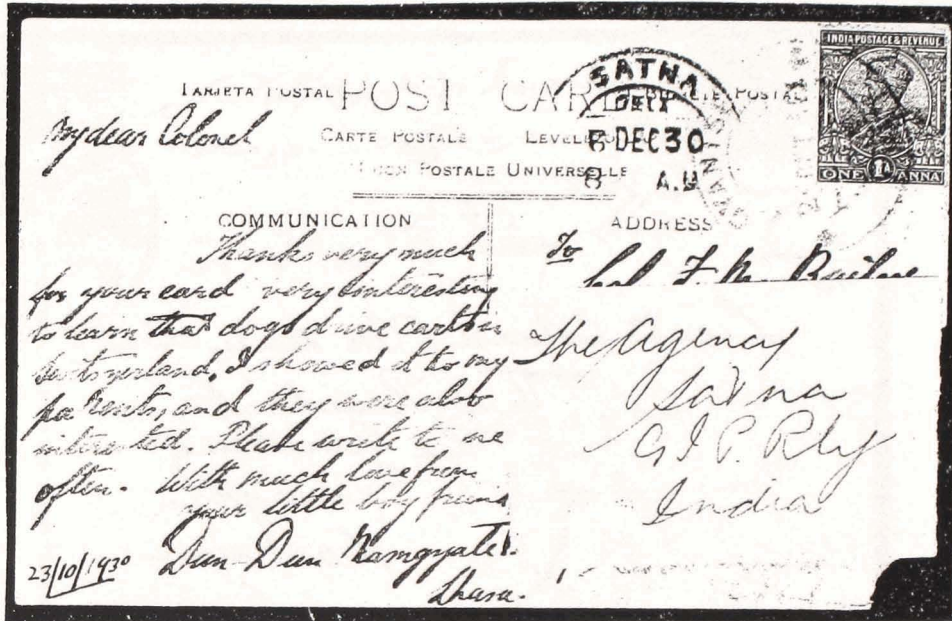 TARJETA POSTAL POST CARD POSTAL
CARTE POSTALE
UNION POSTALE UNIVERSELLE
SATNA
DEC 30
8 A.M
INDIA POSTAGE & REVENUE
ONE 1A ANNA
My dear Colonel
COMMUNICATION
Thanks very much
for your card very interesting
to learn that dogs drive carts in
Switzerland. I showed it to my
parents, and they were also
interested. Please write to me
often. With much love from
your little boy friend
Dun-Dun Namgyatel.
Lhasa.
23/10/1930
ADDRESS
To
Col F. M. Bailey
The Agency
Satna
G I P. Rly
India